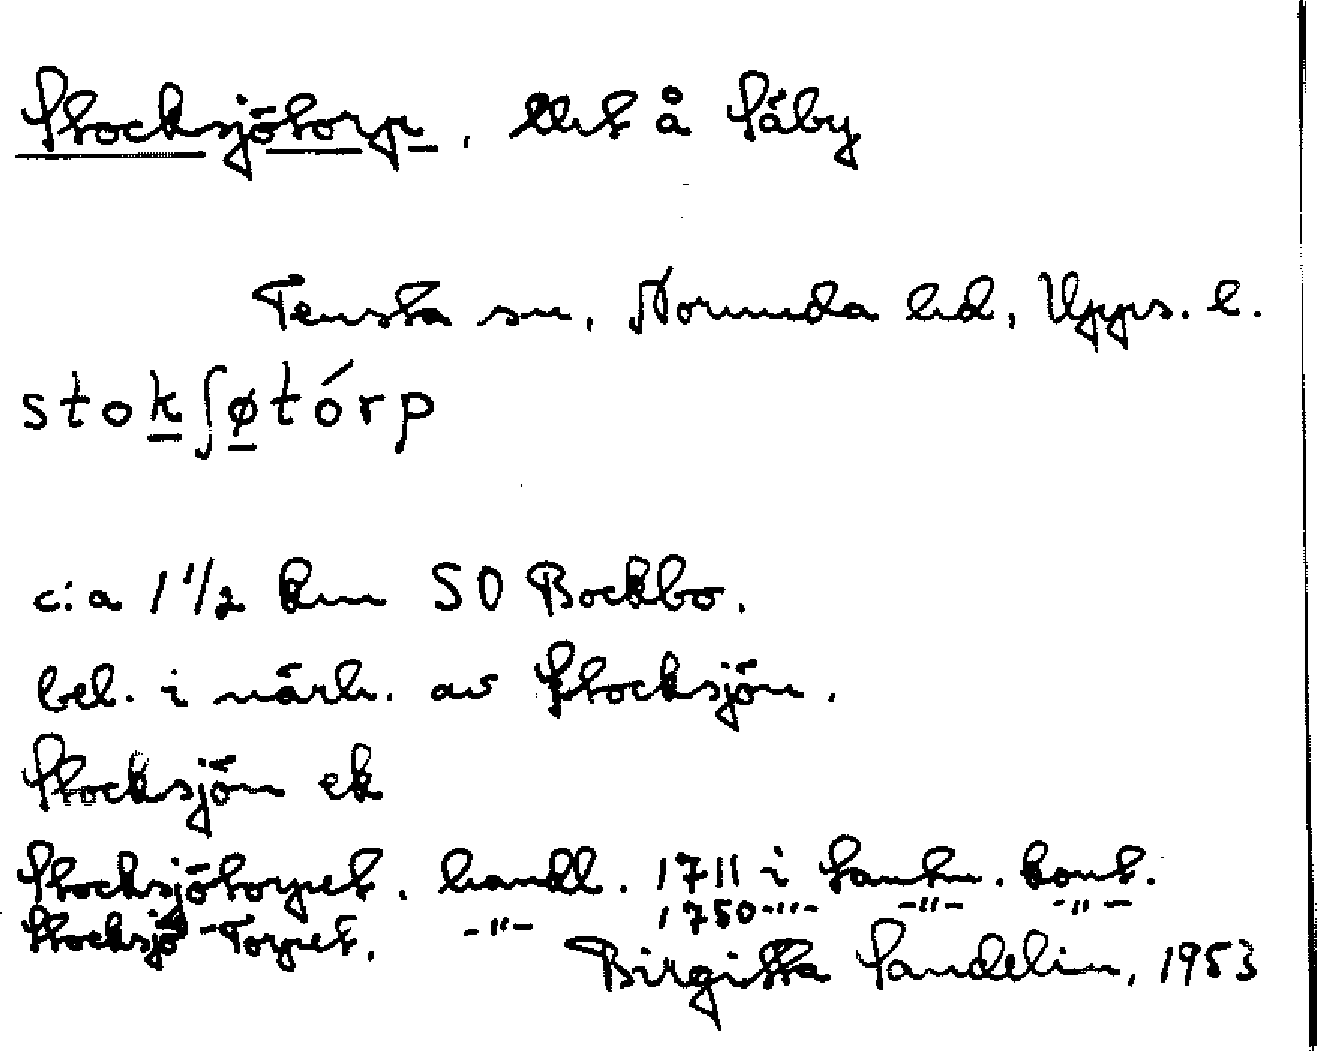 Stocksjötorp, utat å Säby
Tensta sn, Norunda hd, Upps. l.
stokʃøtórp
c:a 1 1/2 km SO Bockbo.
bel. i närh. av Stocksjön.
Stocksjön ek
Stocksjötorpet. handl. 1711 i Lantm. kont.
Stocksjö-Torpet. -"- 1750 -"- -"- -"-
Birgitta Sandelin, 1953